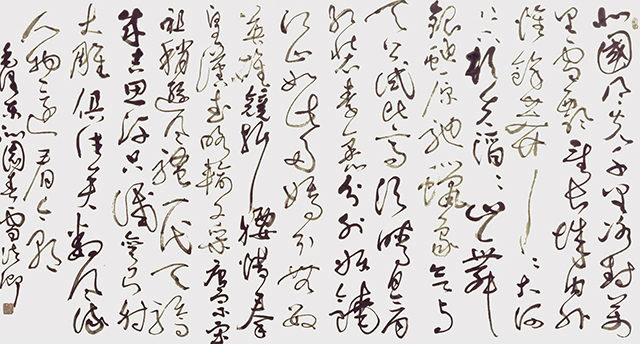 北國風光千里冰封萬
里雪飄望長城內外
惟餘莽〻大河
上下頓失滔〻山舞
銀蛇原馳蠟象欲与
天公試比高須晴日看
紅裝素裹分外妖嬈
江山如此多嬌引無數
英雄競折腰惜秦
皇漢武略輸文采唐宗宋
祖稍遜風騷一代天驕
成吉思汗只識彎弓射
大雕俱往矣數風流
人物還看今朝
毛澤東沁園春雪